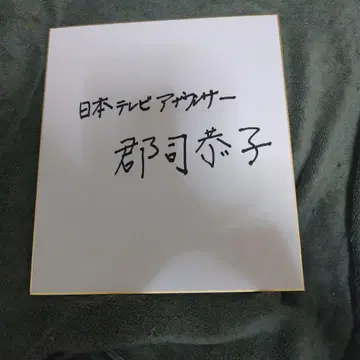 日本テレビアナウンサー
郡司恭子